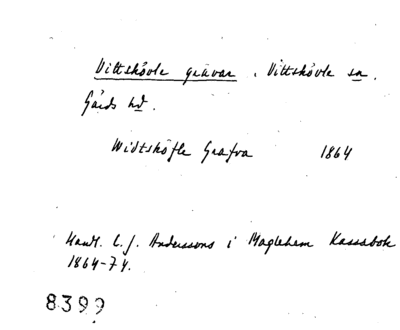 Vittskövle gravar. Vittskövle sn.
Gärds hd.
Widtsköfle Grafva 1864
Handl. C. J. Anderssons i Maglehem Kassabok
1864-74.
8399